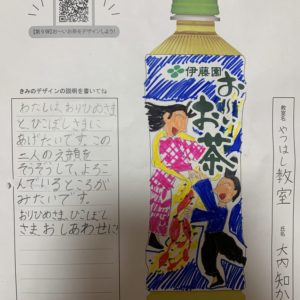 【第9回】お〜いお茶をデザインしよう!
きみのデザインの説明を書いてね
わたしは、おりひめさま
と、ひこぼしさまに
あげたいです。この
二人の笑顔を
そうぞうして、よろこ
んでいるところが
みたいです。
おりひめさま、ひこぼし
さま おしあわせに!
伊藤園
お〜い
お茶
教室名 やつはし教室
氏名 大内知か